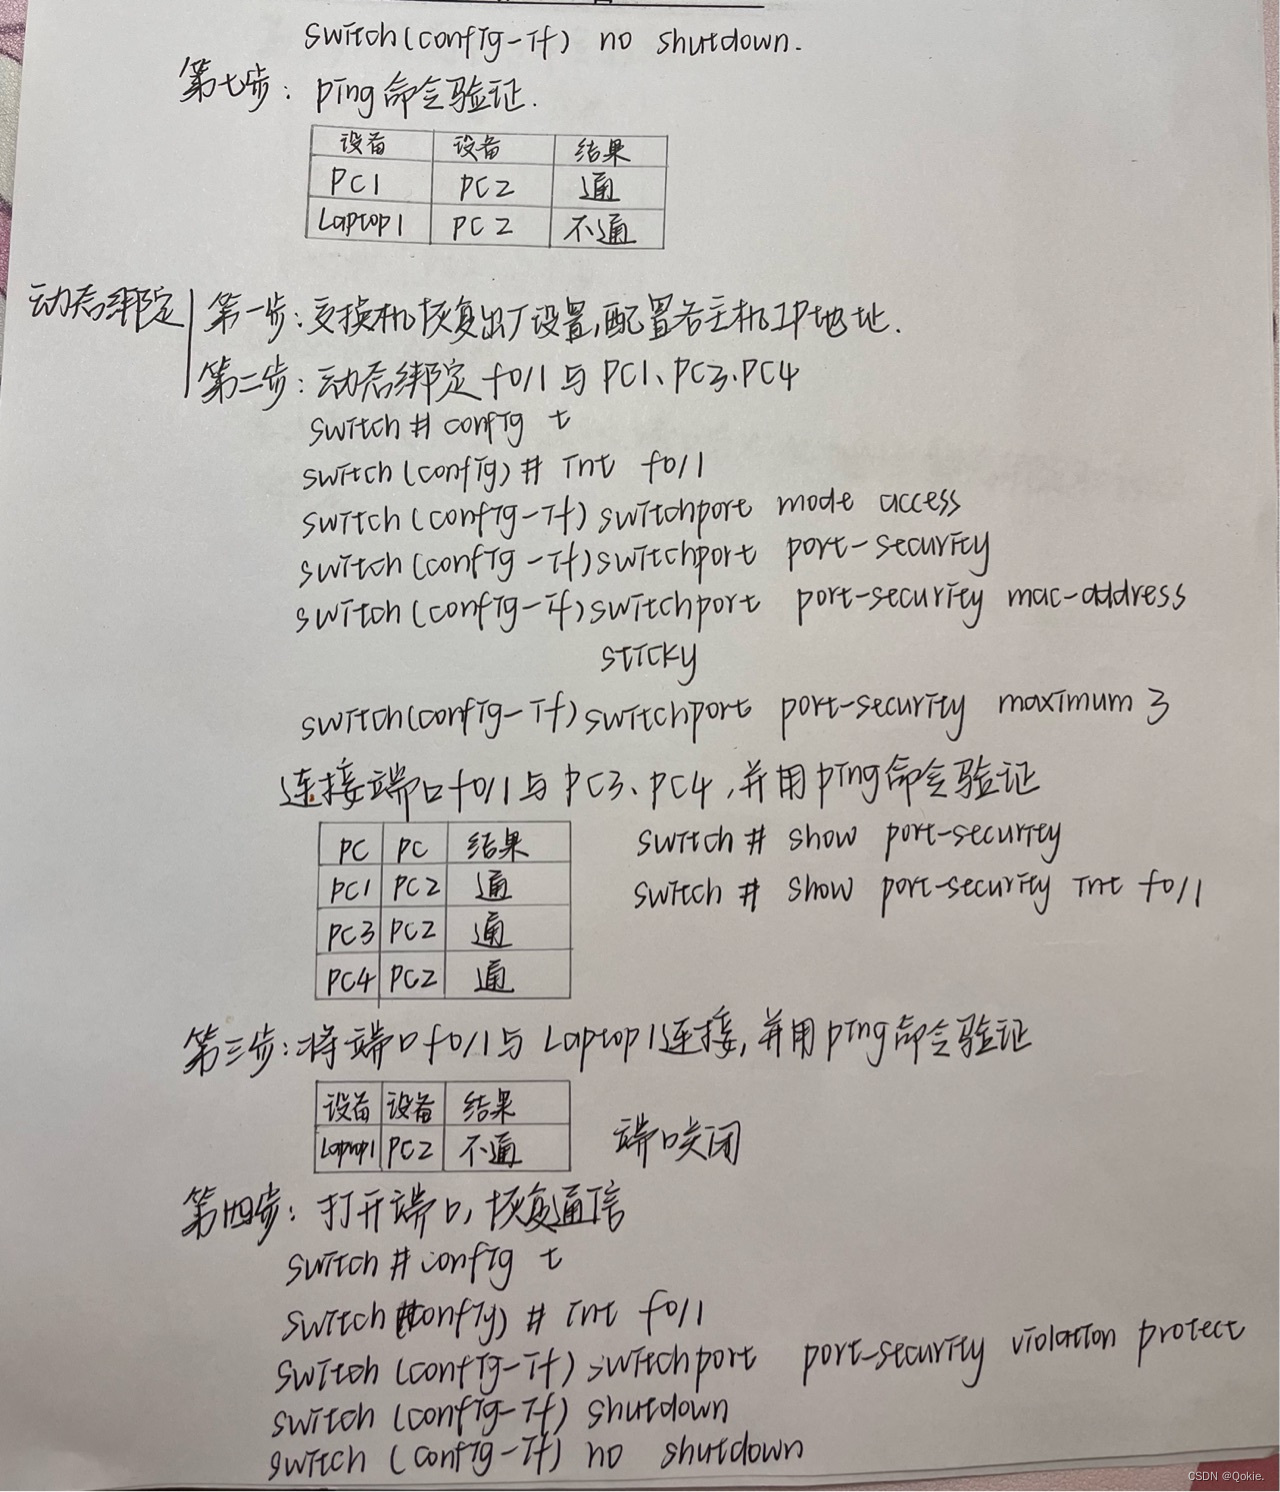 switch(config-if) no shutdown.
第七步: ping命令验证.
设备 设备 结果
PC1 PC2 通
Laptop1 PC2 不通
动态绑定 第一步:交换机恢复出厂设置,配置各主机IP地址.
第二步:动态绑定 f0/1 与 PC1、PC3、PC4
switch # config t
switch (config) # int f0/1
switch (config-if) switchport mode access
switch (config-if) switchport port-security
switch (config-if) switchport port-security mac-address
sticky
switch(config-if) switchport port-security maximum 3
连接端口f0/1与PC3、PC4,并用ping命令验证
PC PC 结果
PC1 PC2 通
PC3 PC2 通
PC4 PC2 通
switch # show port-security
switch # show port-security int f0/1
第三步:将端口f0/1与Laptop1连接,并用ping命令验证
设备 设备 结果
Laptop1 PC2 不通
端口关闭
第四步:打开端口,恢复通信
switch # config t
switch (config) # int f0/1
switch (config-if) switchport port-security violation protect
switch (config-if) shutdown
switch (config-if) no shutdown
CSDN @Qokie.